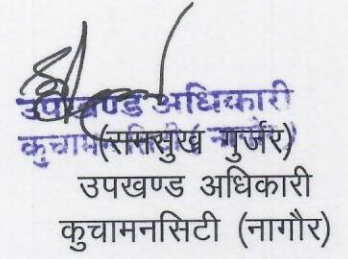 उपखण्ड अधिकारी
कुचामनसिटी (नागौर)
(रामसुख गुर्जर)
उपखण्ड अधिकारी
कुचामनसिटी (नागौर)